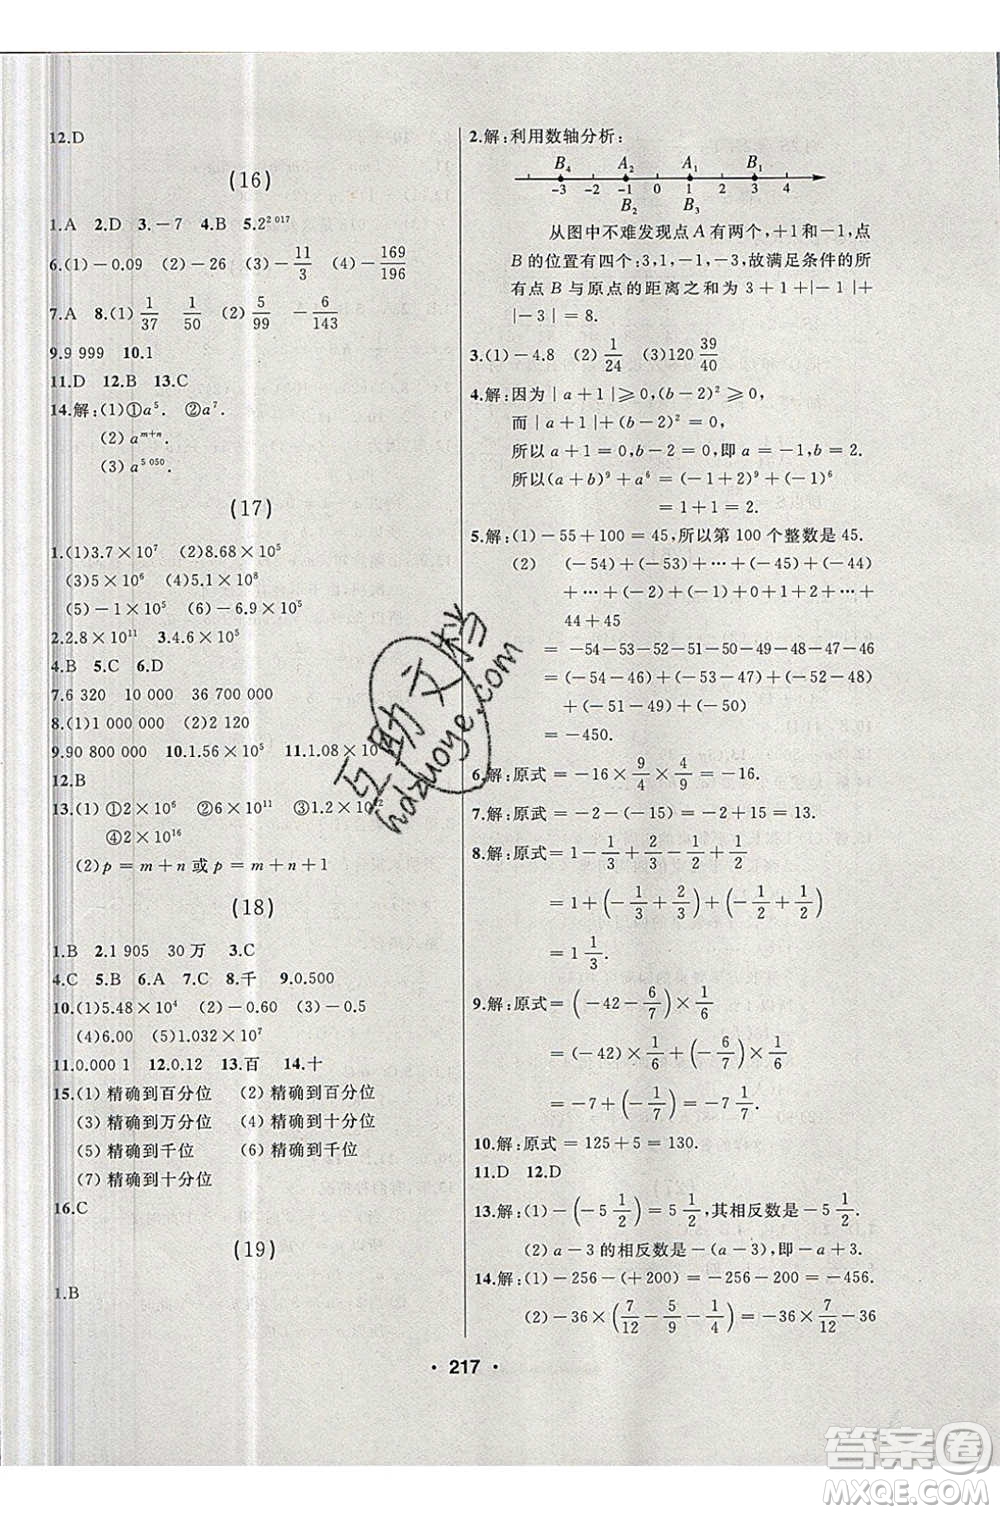 12.D
(16)
1.A 2.D 3.－7 4.B 5.2^{2 017}
6.(1)－0.09 (2)－26 (3)－11/3 (4)－169/196
7.A 8.(1) 1/37 1/50 (2) 5/99 －6/143
9.9 999 10.1
11.D 12.B 13.C
14.解:(1)①a⁵. ②a⁷.
(2) a^{m+n}.
(3) a^{5 050}.
(17)
1.(1)3.7×10⁷ (2)8.68×10⁴
(3)5×10⁶ (4)5.1×10⁸
(5)－1×10⁵ (6)－6.9×10⁵
2.2.8×10¹¹ 3.4.6×10⁵
4.B 5.C 6.D
7.6 320 10 000 36 700 000
8.(1)1 000 000 (2)2 120
9.90 800 000 10.1.56×10⁵ 11.1.08×10
12.B
13.(1) ①2×10⁶ ②6×10¹¹ ③1.2×10
④2×10¹⁶
(2)p＝m＋n或p＝m＋n＋1
(18)
1.B 2.1 905 30万 3.C
4.C 5.B 6.A 7.C 8.千 9.0.500
10.(1)5.48×10⁴ (2)－0.60 (3)－0.5
(4)6.00 (5)1.032×10⁷
11.0.000 1 12.0.12 13.百 14.十
15.(1) 精确到百分位 (2) 精确到百分位
(3) 精确到万分位 (4) 精确到十分位
(5) 精确到千位 (6) 精确到千位
(7) 精确到十分位
16.C
(19)
1.B
2.解:利用数轴分析:
B₄ A₂ A₁ B₁
－3 －2 －1 0 1 2 3 4
B₂ B₃
从图中不难发现点 A 有两个,＋1和－1,点
B 的位置有四个:3,1,－1,－3,故满足条件的所
有点 B 与原点的距离之和为 3＋1＋|－1|＋
|－3|＝8.
3.(1)－4.8 (2) 1/24 (3)120 39/40
4.解:因为|a＋1|≥0,(b－2)²≥0,
而|a＋1|＋(b－2)²＝0,
所以 a＋1＝0,b－2＝0,即 a＝－1,b＝2.
所以(a＋b)⁹＋a⁶＝(－1＋2)⁹＋(－1)⁶
＝1＋1＝2.
5.解:(1)－55＋100＝45,所以第 100 个整数是 45.
(2) (－54)＋(－53)＋(－45)＋(－44)
＋…＋(－1)＋0＋1＋…＋
44＋45
＝ －54－53－52－51－50－49－48－47－46
＝(－54－46)＋(－53－47)＋(－52－48)
＋(－51－49)＋(－50)
＝－450.
6.解:原式＝－16×9/4×4/9＝－16.
7.解:原武＝－2－(－15)＝－2＋15＝13.
8.解:原式＝1－1/3＋2/3－1/2＋1/2
＝1＋(－1/3＋2/3)＋(－1/2＋1/2)
＝1 1/3.
9.解:原式＝(－42－6/7)×1/6
＝(－42)×1/6＋(－6/7)×1/6
＝－7＋(－1/7)＝－7 1/7.
10.解:原式＝125＋5＝130.
11.D 12.D
13.解:(1)－(－5 1/2)＝5 1/2,其相反数是－5 1/2.
(2) a－3 的相反数是－(a－3),即－a＋3.
14.解:(1)－256－(＋200)＝－256－200＝－456.
(2)－36×(7/12－5/9－1/4)＝－36×7/12－36
· 217 ·
互助文档
hdzuoye.com
答案圈
MXQE.COM